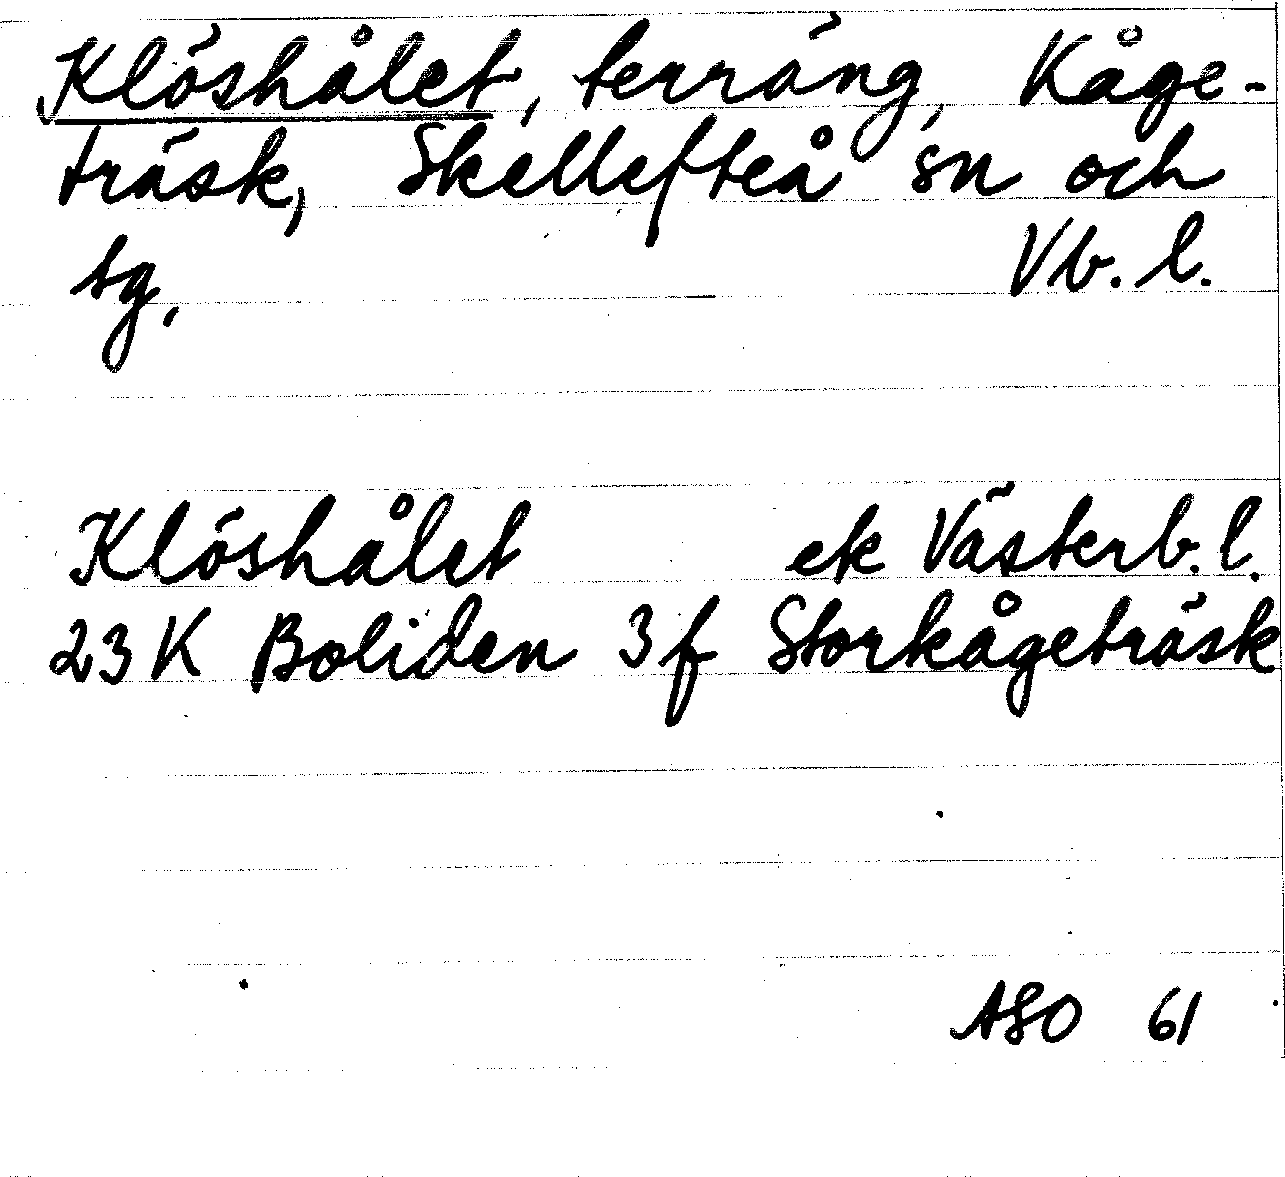 Klöshålet, terräng, Kåge-
träsk, Skellefteå sn och
sg. Vb. l.
Klöshålet ek Västerb. l.
23 K Boliden 3f Storkågeträsk
ASO 61